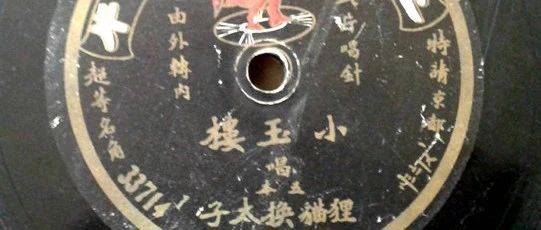 由外轉內
唱針
特請京都
超等名角
小玉樓
唱
五本
狸猫換太子
33714